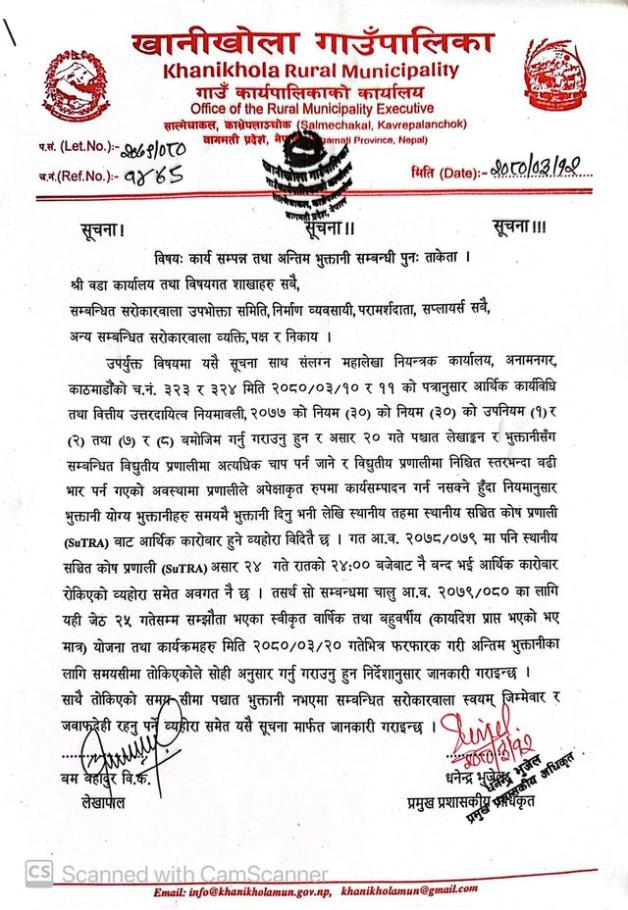 खानीखोला गाउँपालिका
Khanikhola Rural Municipality
गाउँ कार्यपालिकाको कार्यालय
Office of the Rural Municipality Executive
साल्मेचाकल, काभ्रेपलाञ्चोक (Salmechakal, Kavrepalanchok)
वागमती प्रदेश, Province, Nepal)
प.सं. (Let.No.):- २०७९/०८०
च.नं.(Ref.No.):-
मिति (Date):- २०८०/०३/१२
सूचना। सूचना।। सूचना।।।
विषयः कार्य सम्पन्न तथा अन्तिम भुक्तानी सम्बन्धी पुनः ताकेता ।
श्री वडा कार्यालय तथा विषयगत शाखाहरु सवै,
सम्बन्धित सरोकारवाला उपभोक्ता समिति, निर्माण व्यवसायी, परामर्शदाता, सप्लायर्स सवै,
अन्य सम्बन्धित सरोकारवाला व्यक्ति, पक्ष र निकाय ।
उपर्युक्त विषयमा यसै सूचना साथ संलग्न महालेखा नियन्त्रक कार्यालय, अनामनगर,
काठमाडौंको च.नं. ३२३ र ३२४ मिति २०८०/०३/१० र ११ को पत्रानुसार आर्थिक कार्यविधि
तथा वित्तीय उत्तरदायित्व नियमावली, २०७७ को नियम (३०) को नियम (३०) को उपनियम (१) र
(२) तथा (७) र (८) बमोजिम गर्नु गराउनु हुन र असार २० गते पश्चात लेखाङ्कन र भुक्तानीसँग
सम्बन्धित विद्युतीय प्रणालीमा अत्यधिक चाप पर्न जाने र विद्युतीय प्रणालीमा निश्चित स्तरभन्दा वढी
भार पर्न गएको अवस्थामा प्रणालीले अपेक्षाकृत रुपमा कार्यसम्पादन गर्न नसक्ने हुँदा नियमानुसार
भुक्तानी योग्य भुक्तानीहरु समयमै भुक्तानी दिनु भनी लेखि स्थानीय तहमा स्थानीय सञ्चित कोष प्रणाली
(SuTRA) बाट आर्थिक कारोबार हुने व्यहोरा विदितै छ । गत आ.व. २०७८/०७९ मा पनि स्थानीय
सञ्चित कोष प्रणाली (SuTRA) असार २४ गते रातको २४:०० बजेबाट नै बन्द भई आर्थिक कारोबार
रोकिएको व्यहोरा समेत अवगत नै छ । तसर्थ सो सम्बन्धमा चालु आ.व. २०७९/०८० का लागि
यही जेठ २५ गतेसम्म सम्झौता भएका स्वीकृत वार्षिक तथा बहुवर्षीय (कार्यादेश प्राप्त भएको भए
मात्र) योजना तथा कार्यक्रमहरु मिति २०८०/०३/२० गतेभित्र फरफारक गरी अन्तिम भुक्तानीका
लागि समयसीमा तोकिएकोले सोही अनुसार गर्नु गराउनु हुन निर्देशानुसार जानकारी गराइन्छ ।
साथै तोकिएको समय सीमा पश्चात भुक्तानी नभएमा सम्बन्धित सरोकारवाला स्वयम् जिम्मेवार र
जवाफदेही रहनु पर्ने व्यहोरा समेत यसै सूचना मार्फत जानकारी गराइन्छ ।
२०८०/३/१२
बम बहादुर वि.क. धनेन्द्र भुजेल
लेखापाल प्रमुख प्रशासकीय अधिकृत
धनेन्द्र भुजेल
प्रमुख प्रशासकीय अधिकृत
CS Scanned with CamScanner
Email: info@khanikholamun.gov.np, khanikholamun@gmail.com